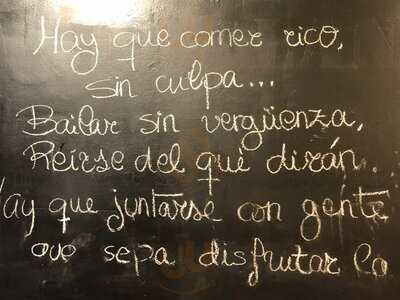 Hay que comer rico,
sin culpa...
Bailar sin vergüenza,
Reirse del qué dirán.
Hay que juntarse con gente
que sepa disfrutar la